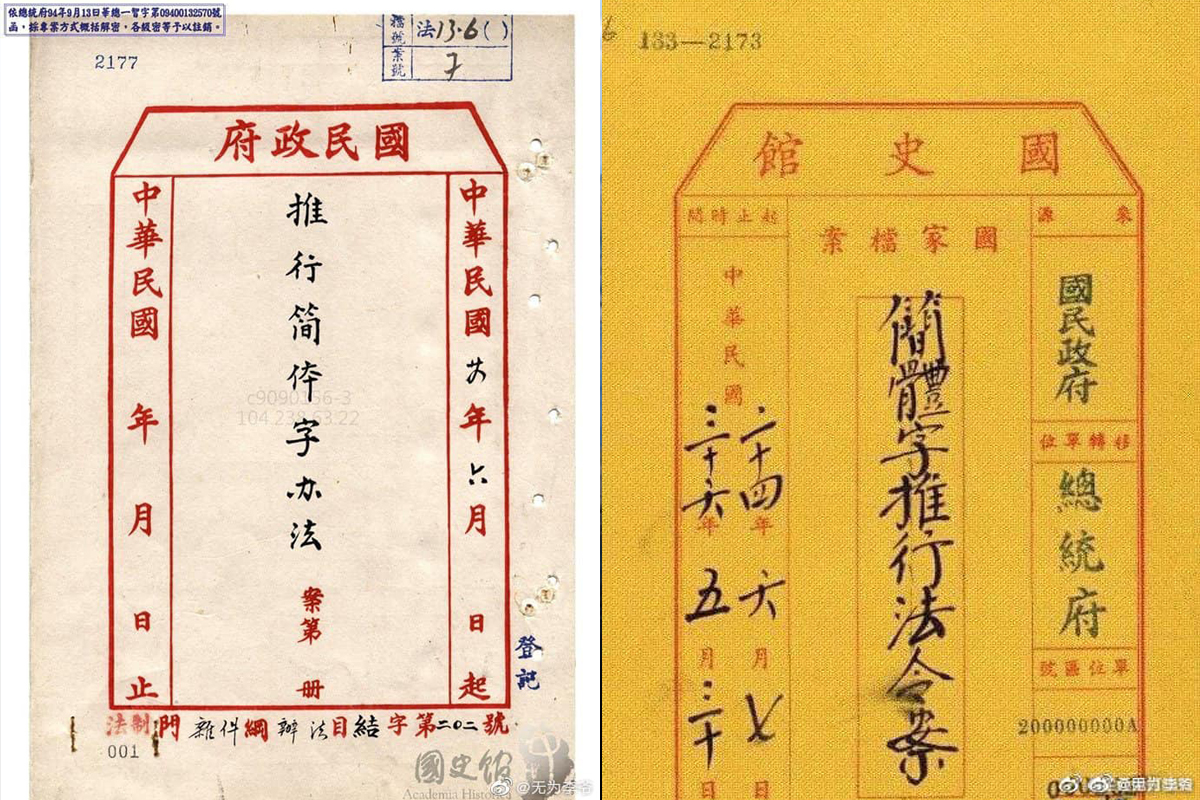 依總統府94年9月13日華總一智字第09400132570號
函，採專案方式概括解密，各級密等予以註銷。
2177
檔號 法13·6( )
案號 7
國民政府
中華民國廿年六月 日起
推行简体字办法
案第 册
中華民國 年 月 日止
登記
法制門雜件綱辦法目結字第二〇二號
001
c9090156-3
104.238.63.22
國史館
Academia Historica
@无为李爷
133—2173
國史館
來源
國民政府
移轉單位
總統府
單位區號
200000000A
國家檔案
簡體字推行法令案
起止時間
中華民國
二十四年六月七日
三十六年五月三十日